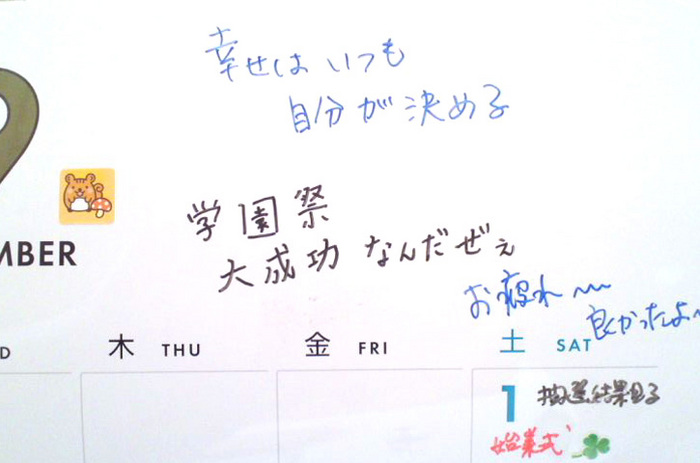 幸せはいつも
自分が決める
9
学園祭
大成功なんだぜぇ
MBER
お疲れ〜
良かったよ〜
D 木 THU 金 FRI 土 SAT
1 抽選結果見る
始業式